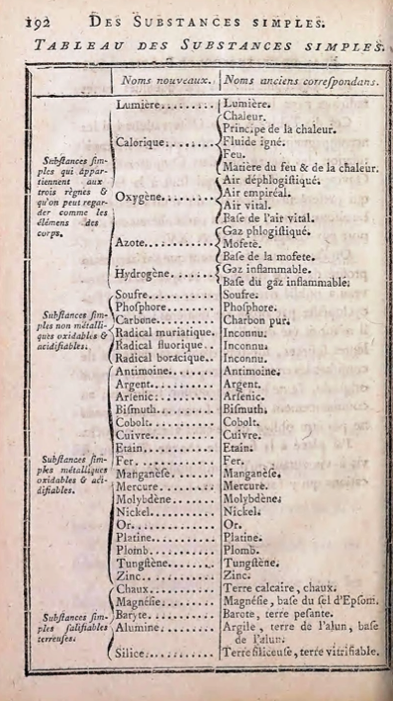 192 DES SUBSTANCES SIMPLES.
TABLEAU DES SUBSTANCES SIMPLES.
Noms nouveaux. Noms anciens correſpondans.
Subſtances ſim-
ples qui appar-
tiennent aux
trois règnes &
qu'on peut regar-
der comme les
élémens des
corps.
Lumière........ Lumière.
Calorique.......
Chaleur.
Principe de la chaleur.
Fluide igné.
Feu.
Matière du feu & de la chaleur.
Oxygène........
Air déphlogiſtiqué.
Air empiréal.
Air vital.
Baſe de l'air vital.
Azote..........
Gaz phlogiſtiqué.
Mofete.
Baſe de la mofete.
Hydrogène......
Gaz inflammable.
Baſe du gaz inflammable.
Subſtances ſim-
ples non métalli-
ques oxidables &
acidifiables.
Soufre.......... Soufre.
Phoſphore....... Phoſphore.
Carbone......... Charbon pur.
Radical muriatique. Inconnu.
Radical fluorique.. Inconnu.
Radical boracique.. Inconnu.
Subſtances ſim-
ples métalliques
oxidables & aci-
difiables.
Antimoine....... Antimoine.
Argent.......... Argent.
Arſenic......... Arſenic.
Biſmuth......... Biſmuth.
Cobolt.......... Cobolt.
Cuivre.......... Cuivre.
Etain........... Etain.
Fer............. Fer.
Manganèſe....... Manganèſe.
Mercure......... Mercure.
Molybdène....... Molybdène.
Nickel.......... Nickel.
Or.............. Or.
Platine......... Platine.
Plomb........... Plomb.
Tungſtène....... Tungſtène.
Zinc............ Zinc.
Subſtances ſim-
ples ſalifiables
terreuſes.
Chaux........... Terre calcaire, chaux.
Magnéſie........ Magnéſie, baſe du ſel d'Epſom.
Baryte.......... Barote, terre peſante.
Alumine......... Argile, terre de l'alun, baſe
de l'alun.
Silice.......... Terre ſiliceuſe, terre vitrifiable.